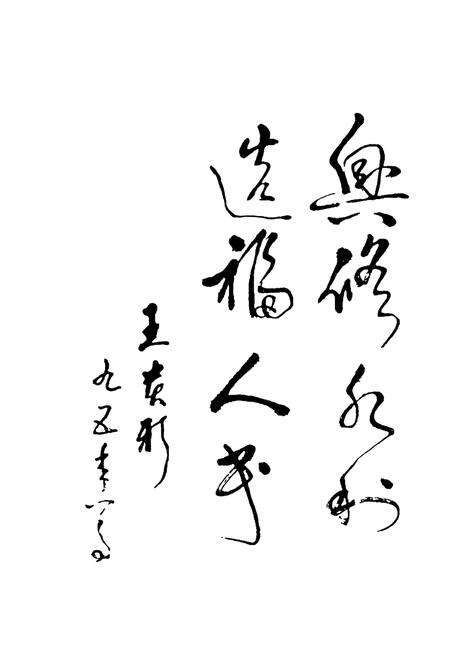 興修水利
造福人民
王
九五年八月